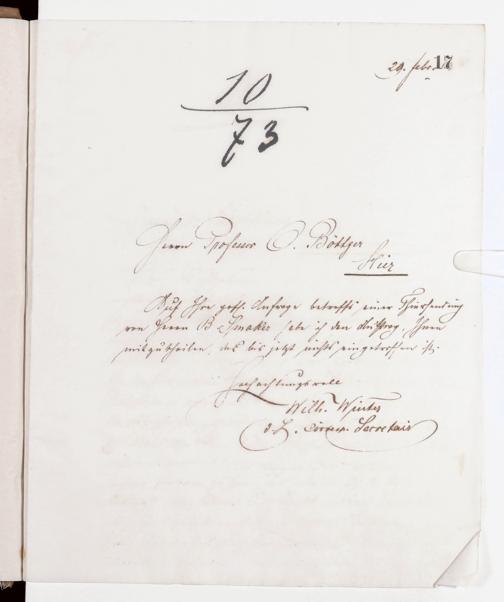 29. Febr. 17
10
73
Herrn Professor O. Böttger
Hier
Auf Ihre gefl. Anfrage betreffs einer Thiersendung
von Herrn B. Schmacker habe ich den Auftrag, Ihnen
mitzutheilen, das bis jetzt nichts eingetroffen ist.
Hochachtungsvoll
Wilh. Winter
d. Z. corresp. Secretair